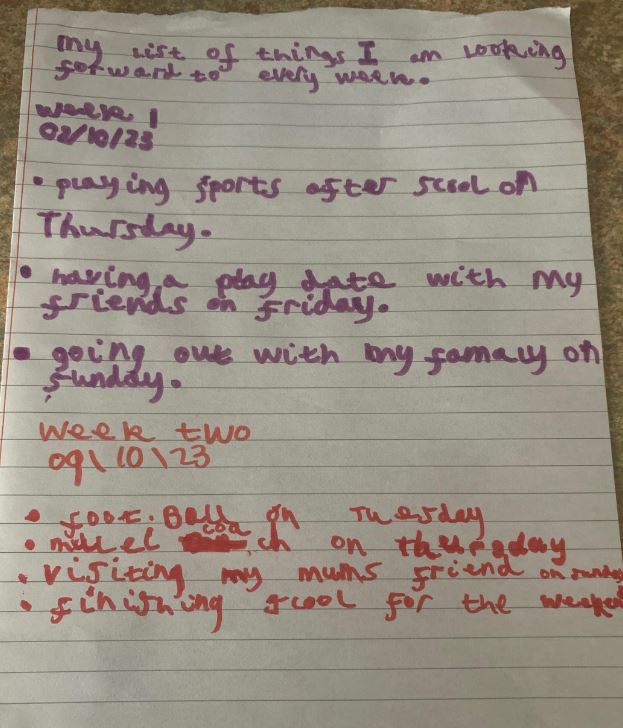 my list of things I am looking
forward to every week.
week 1
02/10/23
• playing sports after scool on
Thursday.
• having a play date with my
friends on friday.
• going out with my famaly on
sunday.
week two
09\10\23
• foot.Ball on Tuesday
• coa ch on thursday
• visiting my mums friend on sunday
• finishing scool for the weeken